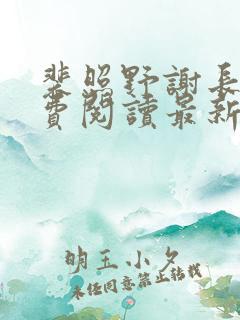 裴照野謝長
費閱讀最新
明玉小夕
未经同意禁止转载